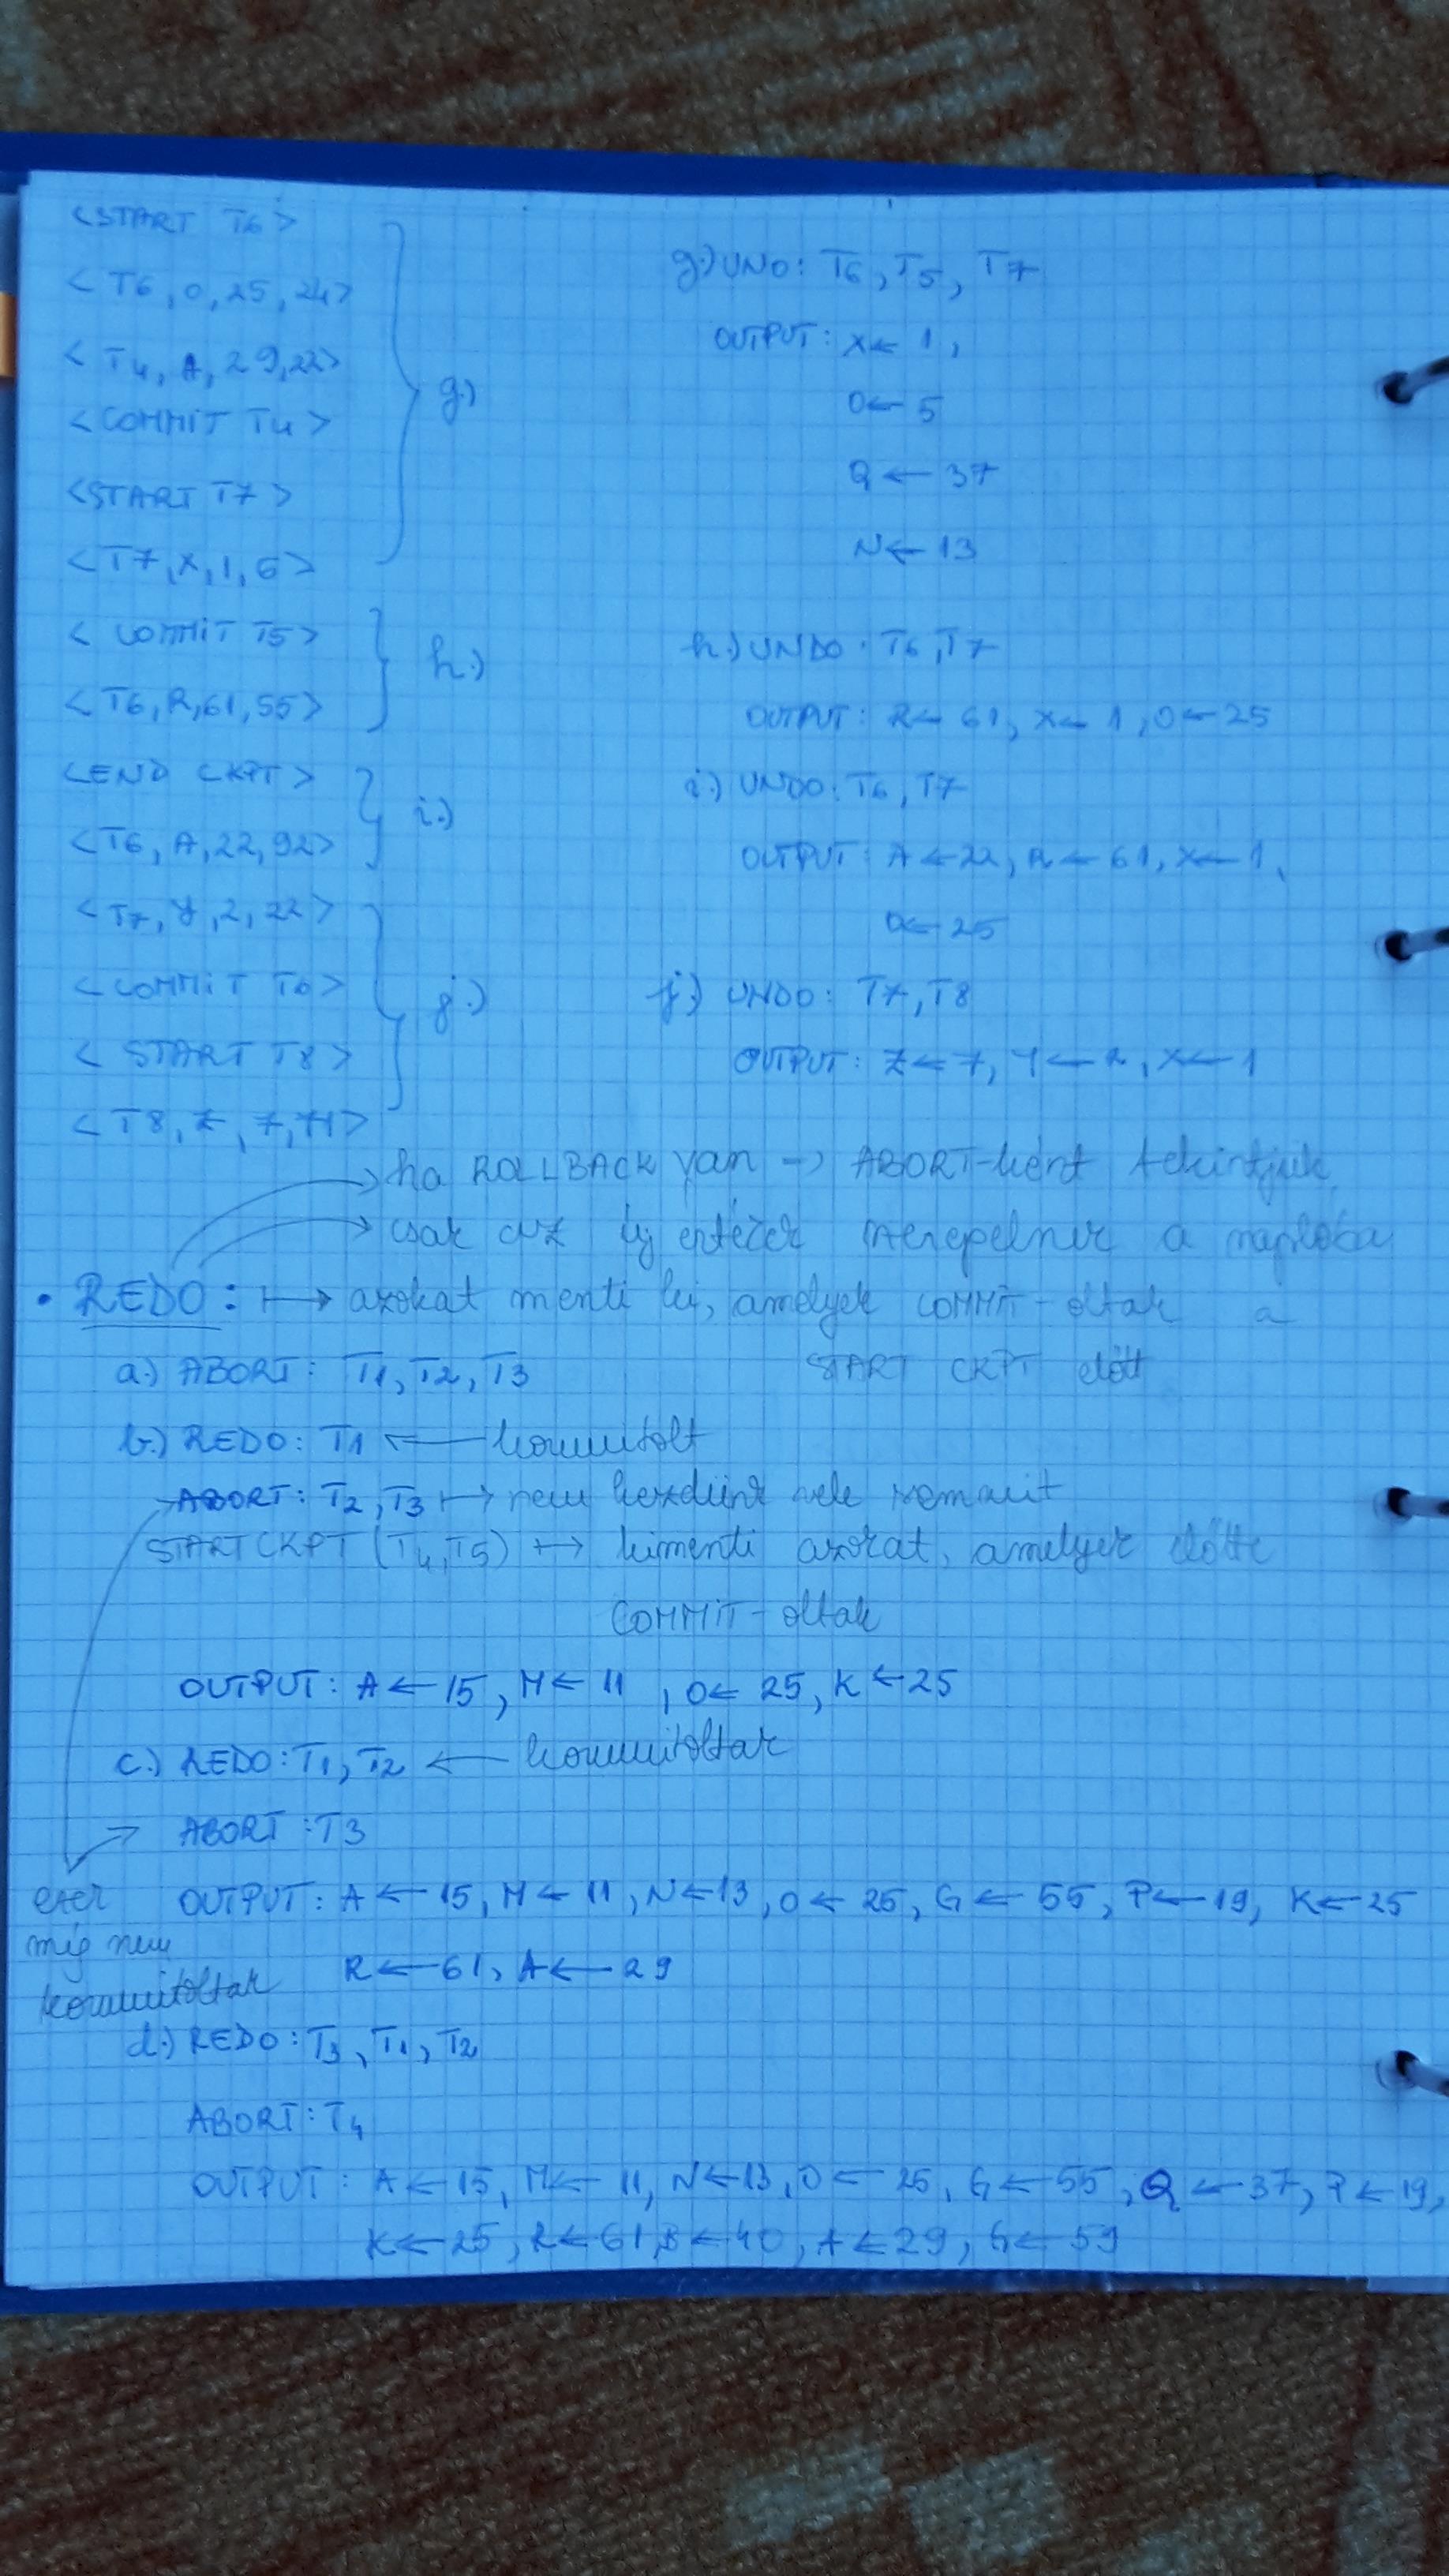 <START T6>
<T6, O, 25, 24>
<T4, A, 29, 22>
<COMMIT T4>
<START T7>
<T7, X, 1, 6>
g.)
<COMMIT T5>
<T6, R, 61, 55>
h.)
<END CKPT>
<T6, A, 22, 92>
i.)
<T7, Y, 2, 22>
<COMMIT T6>
<START T8>
<T8, Z, 7, 71>
j.)
g.) UNO: T6, T5, T7
OUTPUT: X ← 1,
O ← 5
Q ← 37
N ← 13
h.) UNDO: T6, T7
OUTPUT: R ← 61, X ← 1, O ← 25
i.) UNDO: T6, T7
OUTPUT: A ← 22, R ← 61, X ← 1,
O ← 25
j.) UNDO: T7, T8
OUTPUT: Z ← 7, Y ← 2, X ← 1
→ ha ROLLBACK van → ABORT-ként tekintjük
→ csak az új értékek szerepelnek a naplóba
• REDO: ↦ azokat menti ki, amelyek COMMIT-oltak a
START CKPT előtt
a.) ABORT: T1, T2, T3
b.) REDO: T1 ← kommitolt
ABORT: T2, T3 ↦ nem kezdünk vele semmit
START CKPT (T4, T5) ↦ kimenti azokat, amelyek előtte
COMMIT-oltak
OUTPUT: A ← 15, M ← 11, O ← 25, K ← 25
c.) REDO: T1, T2 ← kommitoltak
ABORT: T3
OUTPUT: A ← 15, M ← 11, N ← 13, O ← 25, G ← 55, P ← 19, K ← 25
R ← 61, A ← 29
ezek
még nem
kommitoltak
d.) REDO: T3, T1, T2
ABORT: T4
OUTPUT: A ← 15, M ← 11, N ← 13, O ← 25, G ← 55, Q ← 37, P ← 19,
K ← 25, R ← 61, B ← 40, A ← 29, G ← 59